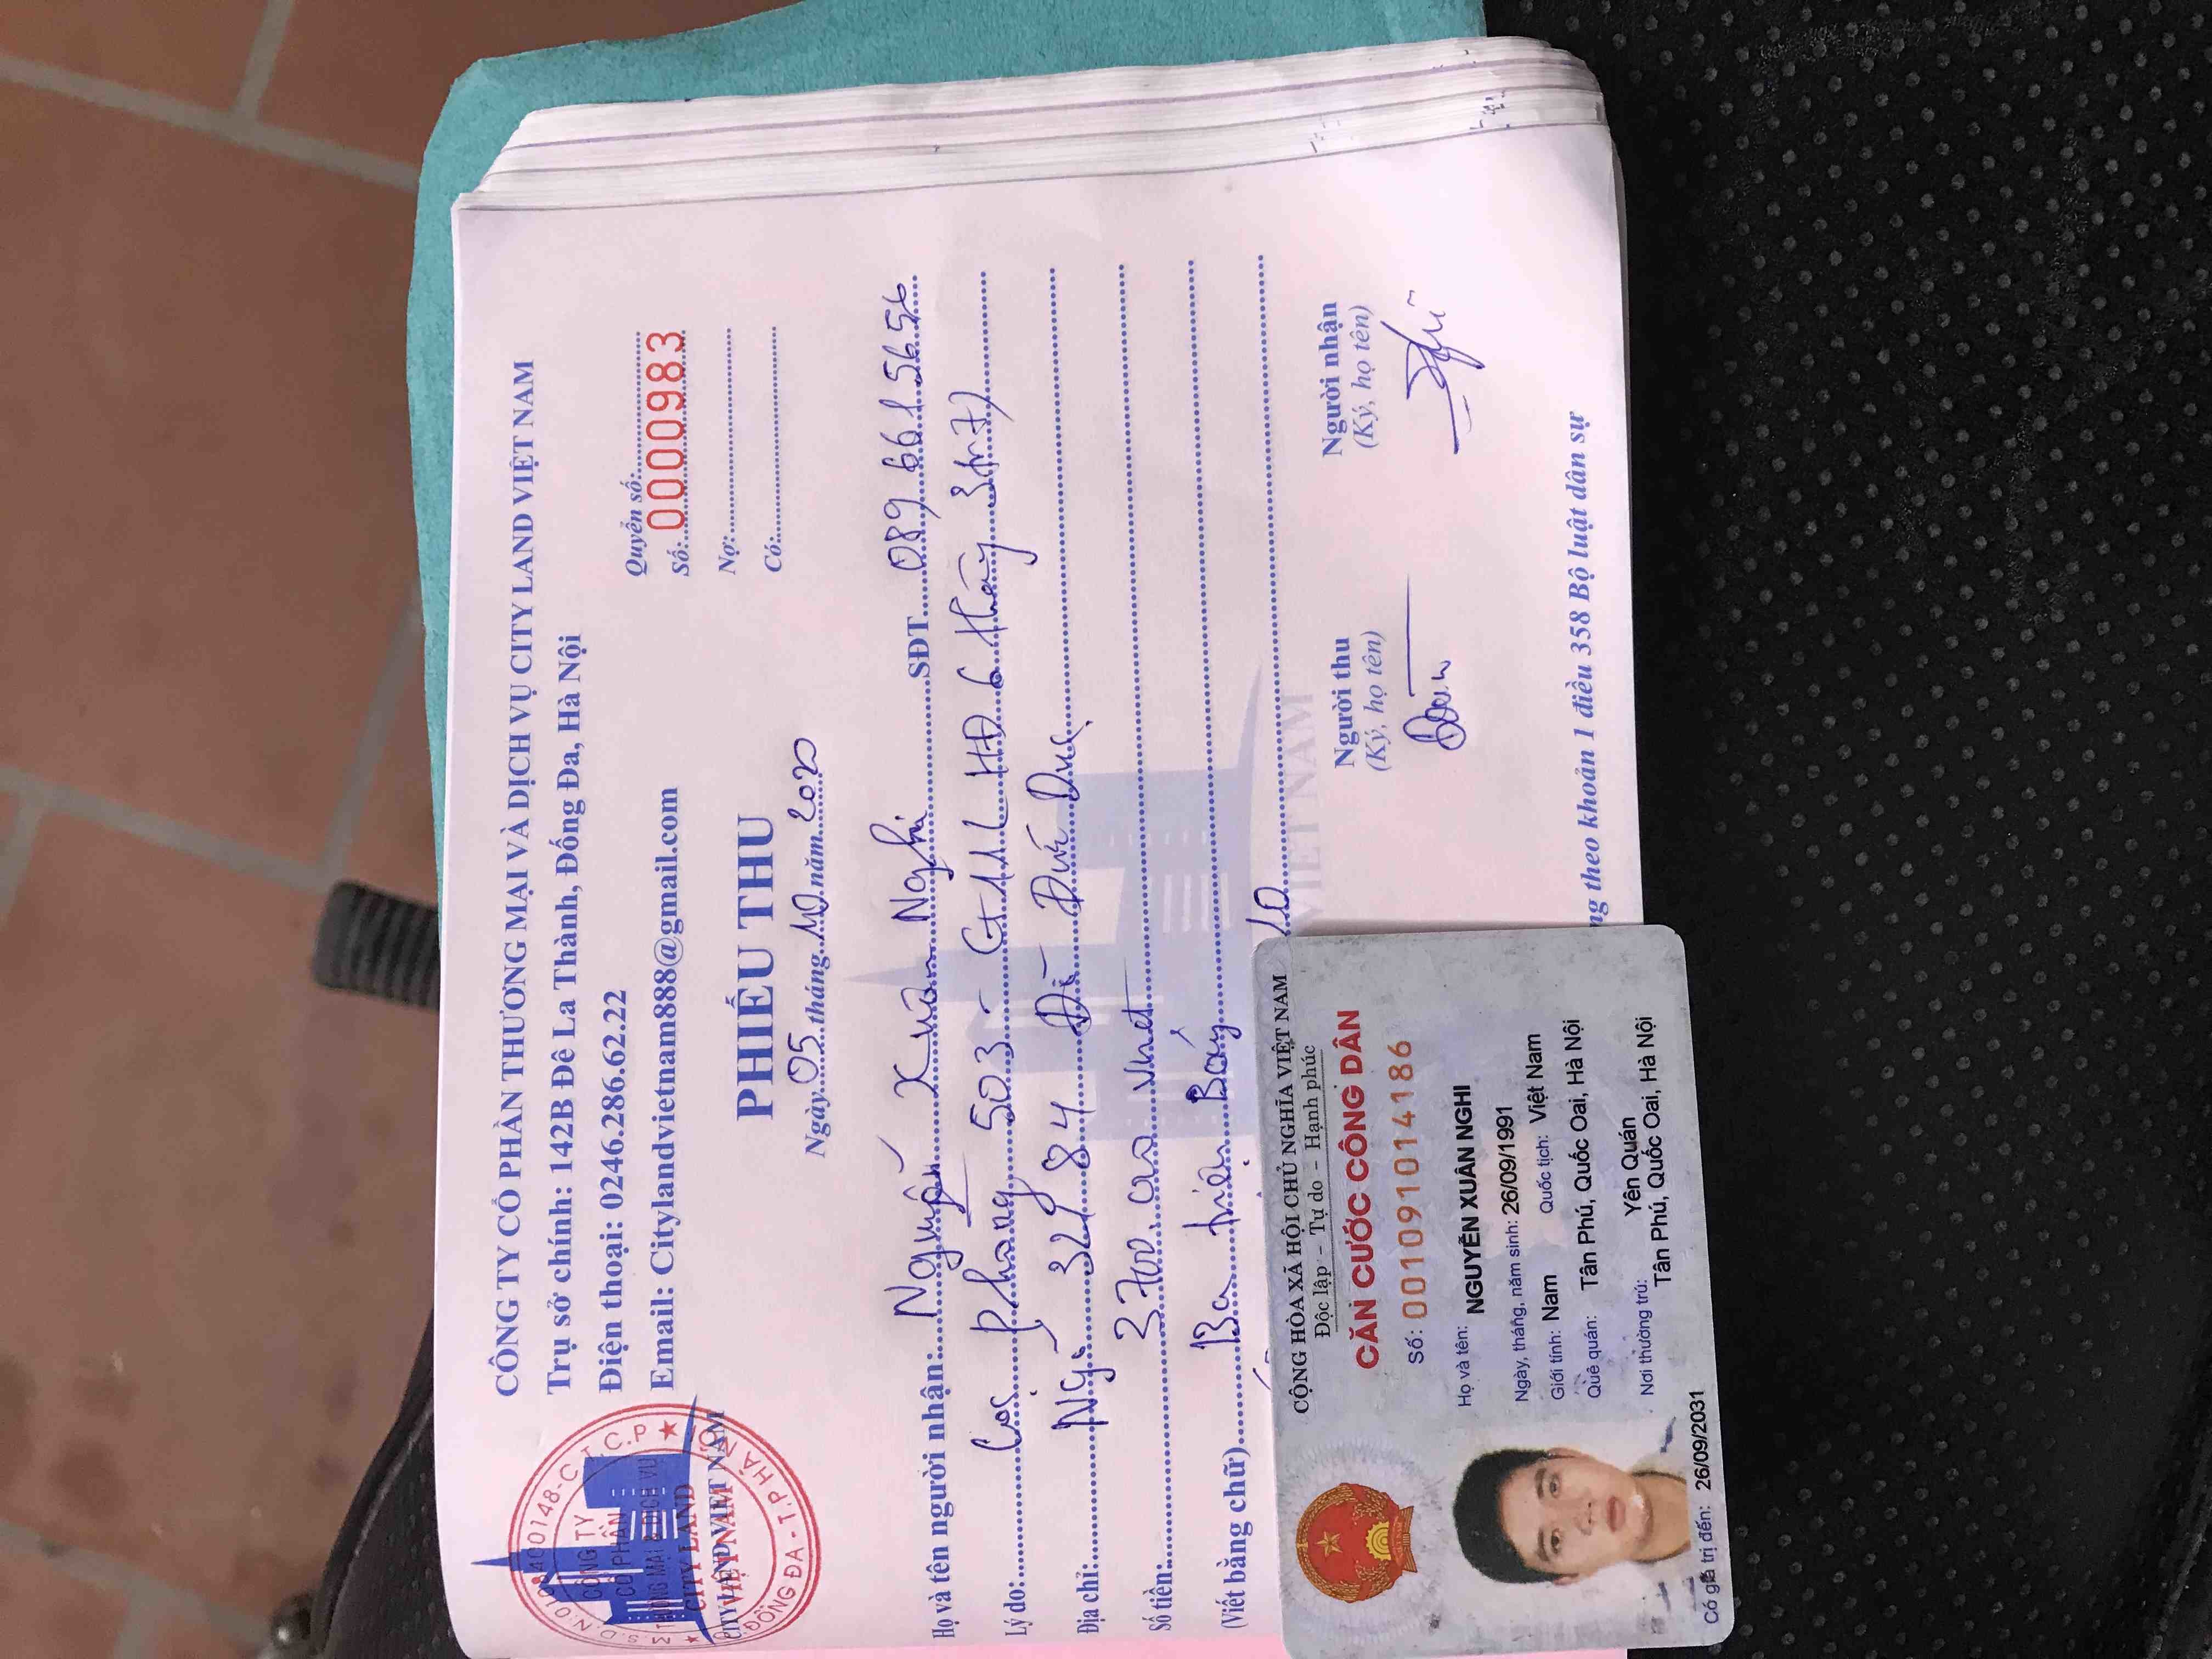 CÔNG TY CỔ PHẦN THƯƠNG MẠI VÀ DỊCH VỤ CITY LAND VIỆT NAM
Trụ sở chính: 142B Đê La Thành, Đống Đa, Hà Nội
Điện thoại: 0246.286.62.22
Email: Citylandvietnam888@gmail.com
CÔNG TY
CỔ PHẦN
CITY LAND
VIỆT NAM
CITYLAND VIET NAM
Q.ĐỐNG ĐA - T.P HÀ NỘI
Quyển số:
Số: 0000983
Nợ:
Có:
PHIẾU THU
Ngày 05 tháng 10 năm 2020
Họ và tên người nhận: Nguyễn Xuân Nghi SĐT 089 661 5656
Lý do: Cọc phòng 503 - G+1L HĐ 6 tháng 3tr7)
Địa chỉ: Ngõ 32 84 Đức
Số tiền: 3700.000 vnđ
(Viết bằng chữ) Ba triệu Bảy
VIET NAM
Người thu
(Ký, họ tên)
Người nhận
(Ký, họ tên)
theo khoản 1 điều 358 Bộ luật dân sự
CỘNG HÒA XÃ HỘI CHỦ NGHĨA VIỆT NAM
Độc lập - Tự do - Hạnh phúc
CĂN CƯỚC CÔNG DÂN
Số: 001091014186
Họ và tên: NGUYỄN XUÂN NGHI
Ngày, tháng, năm sinh: 26/09/1991
Giới tính: Nam Quốc tịch: Việt Nam
Quê quán: Tân Phú, Quốc Oai, Hà Nội
Nơi thường trú: Yên Quán
Tân Phú, Quốc Oai, Hà Nội
Có giá trị đến: 26/09/2031